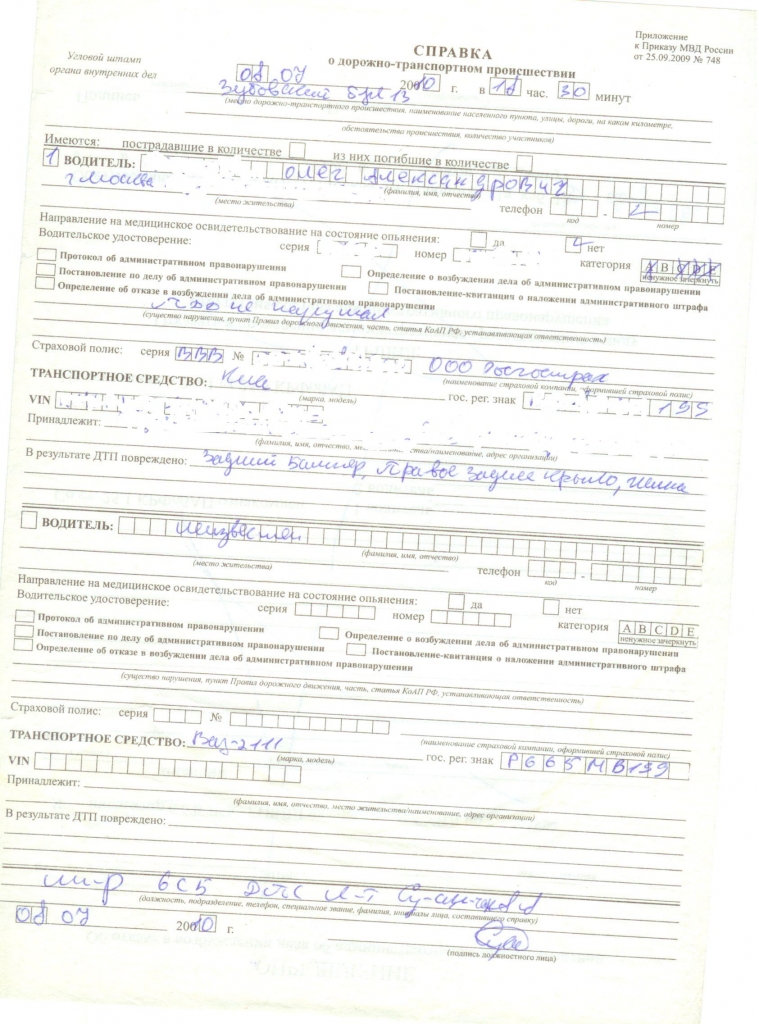 Приложение
к Приказу МВД России
от 25.09.2009 № 748
Угловой штамп
органа внутренних дел
СПРАВКА
о дорожно-транспортном происшествии
08 07 2010 г. в 18 час. 30 минут
Зубовский бул 13
(место дорожно-транспортного происшествия, наименование населенного пункта, улицы, дороги, на каком километре,
обстоятельства происшествия, количество участников)
Имеются: пострадавшие в количестве из них погибшие в количестве
1 ВОДИТЕЛЬ: Олег Александрович
(фамилия, имя, отчество)
г Москва телефон
(место жительства) код номер
Направление на медицинское освидетельствование на состояние опьянения: да нет
Водительское удостоверение: серия номер категория A B C D E
ненужное зачеркнуть
Протокол об административном правонарушении Определение о возбуждении дела об административном правонарушении
Постановление по делу об административном правонарушении Постановление-квитанция о наложении административного штрафа
Определение об отказе в возбуждении дела об административном правонарушении
ПДД не нарушал
(существо нарушения, пункт Правил дорожного движения, часть, статья КоАП РФ, устанавливающая ответственность)
Страховой полис: серия ВВВ № ООО Росгосстрах
(наименование страховой компании, оформившей страховой полис)
ТРАНСПОРТНОЕ СРЕДСТВО: гос. рег. знак 199
(марка, модель)
VIN
Принадлежит:
(фамилия, имя, отчество, место жительства/наименование, адрес организации)
В результате ДТП повреждено: Задний Бампер, Правое заднее крыло,
ВОДИТЕЛЬ: Неизвестен
(фамилия, имя, отчество)
телефон
(место жительства) код номер
Направление на медицинское освидетельствование на состояние опьянения: да нет
Водительское удостоверение: серия номер категория A B C D E
ненужное зачеркнуть
Протокол об административном правонарушении Определение о возбуждении дела об административном правонарушении
Постановление по делу об административном правонарушении Постановление-квитанция о наложении административного штрафа
Определение об отказе в возбуждении дела об административном правонарушении
(существо нарушения, пункт Правил дорожного движения, часть, статья КоАП РФ, устанавливающая ответственность)
Страховой полис: серия №
(наименование страховой компании, оформившей страховой полис)
ТРАНСПОРТНОЕ СРЕДСТВО: Ваз-2111 гос. рег. знак Р665МВ199
(марка, модель)
VIN
Принадлежит:
(фамилия, имя, отчество, место жительства/наименование, адрес организации)
В результате ДТП повреждено:
6СБ ДПС Л-т
(должность, подразделение, телефон, специальное звание, фамилия, инициалы лица, составившего справку)
08 07 2010 г.
(подпись должностного лица)